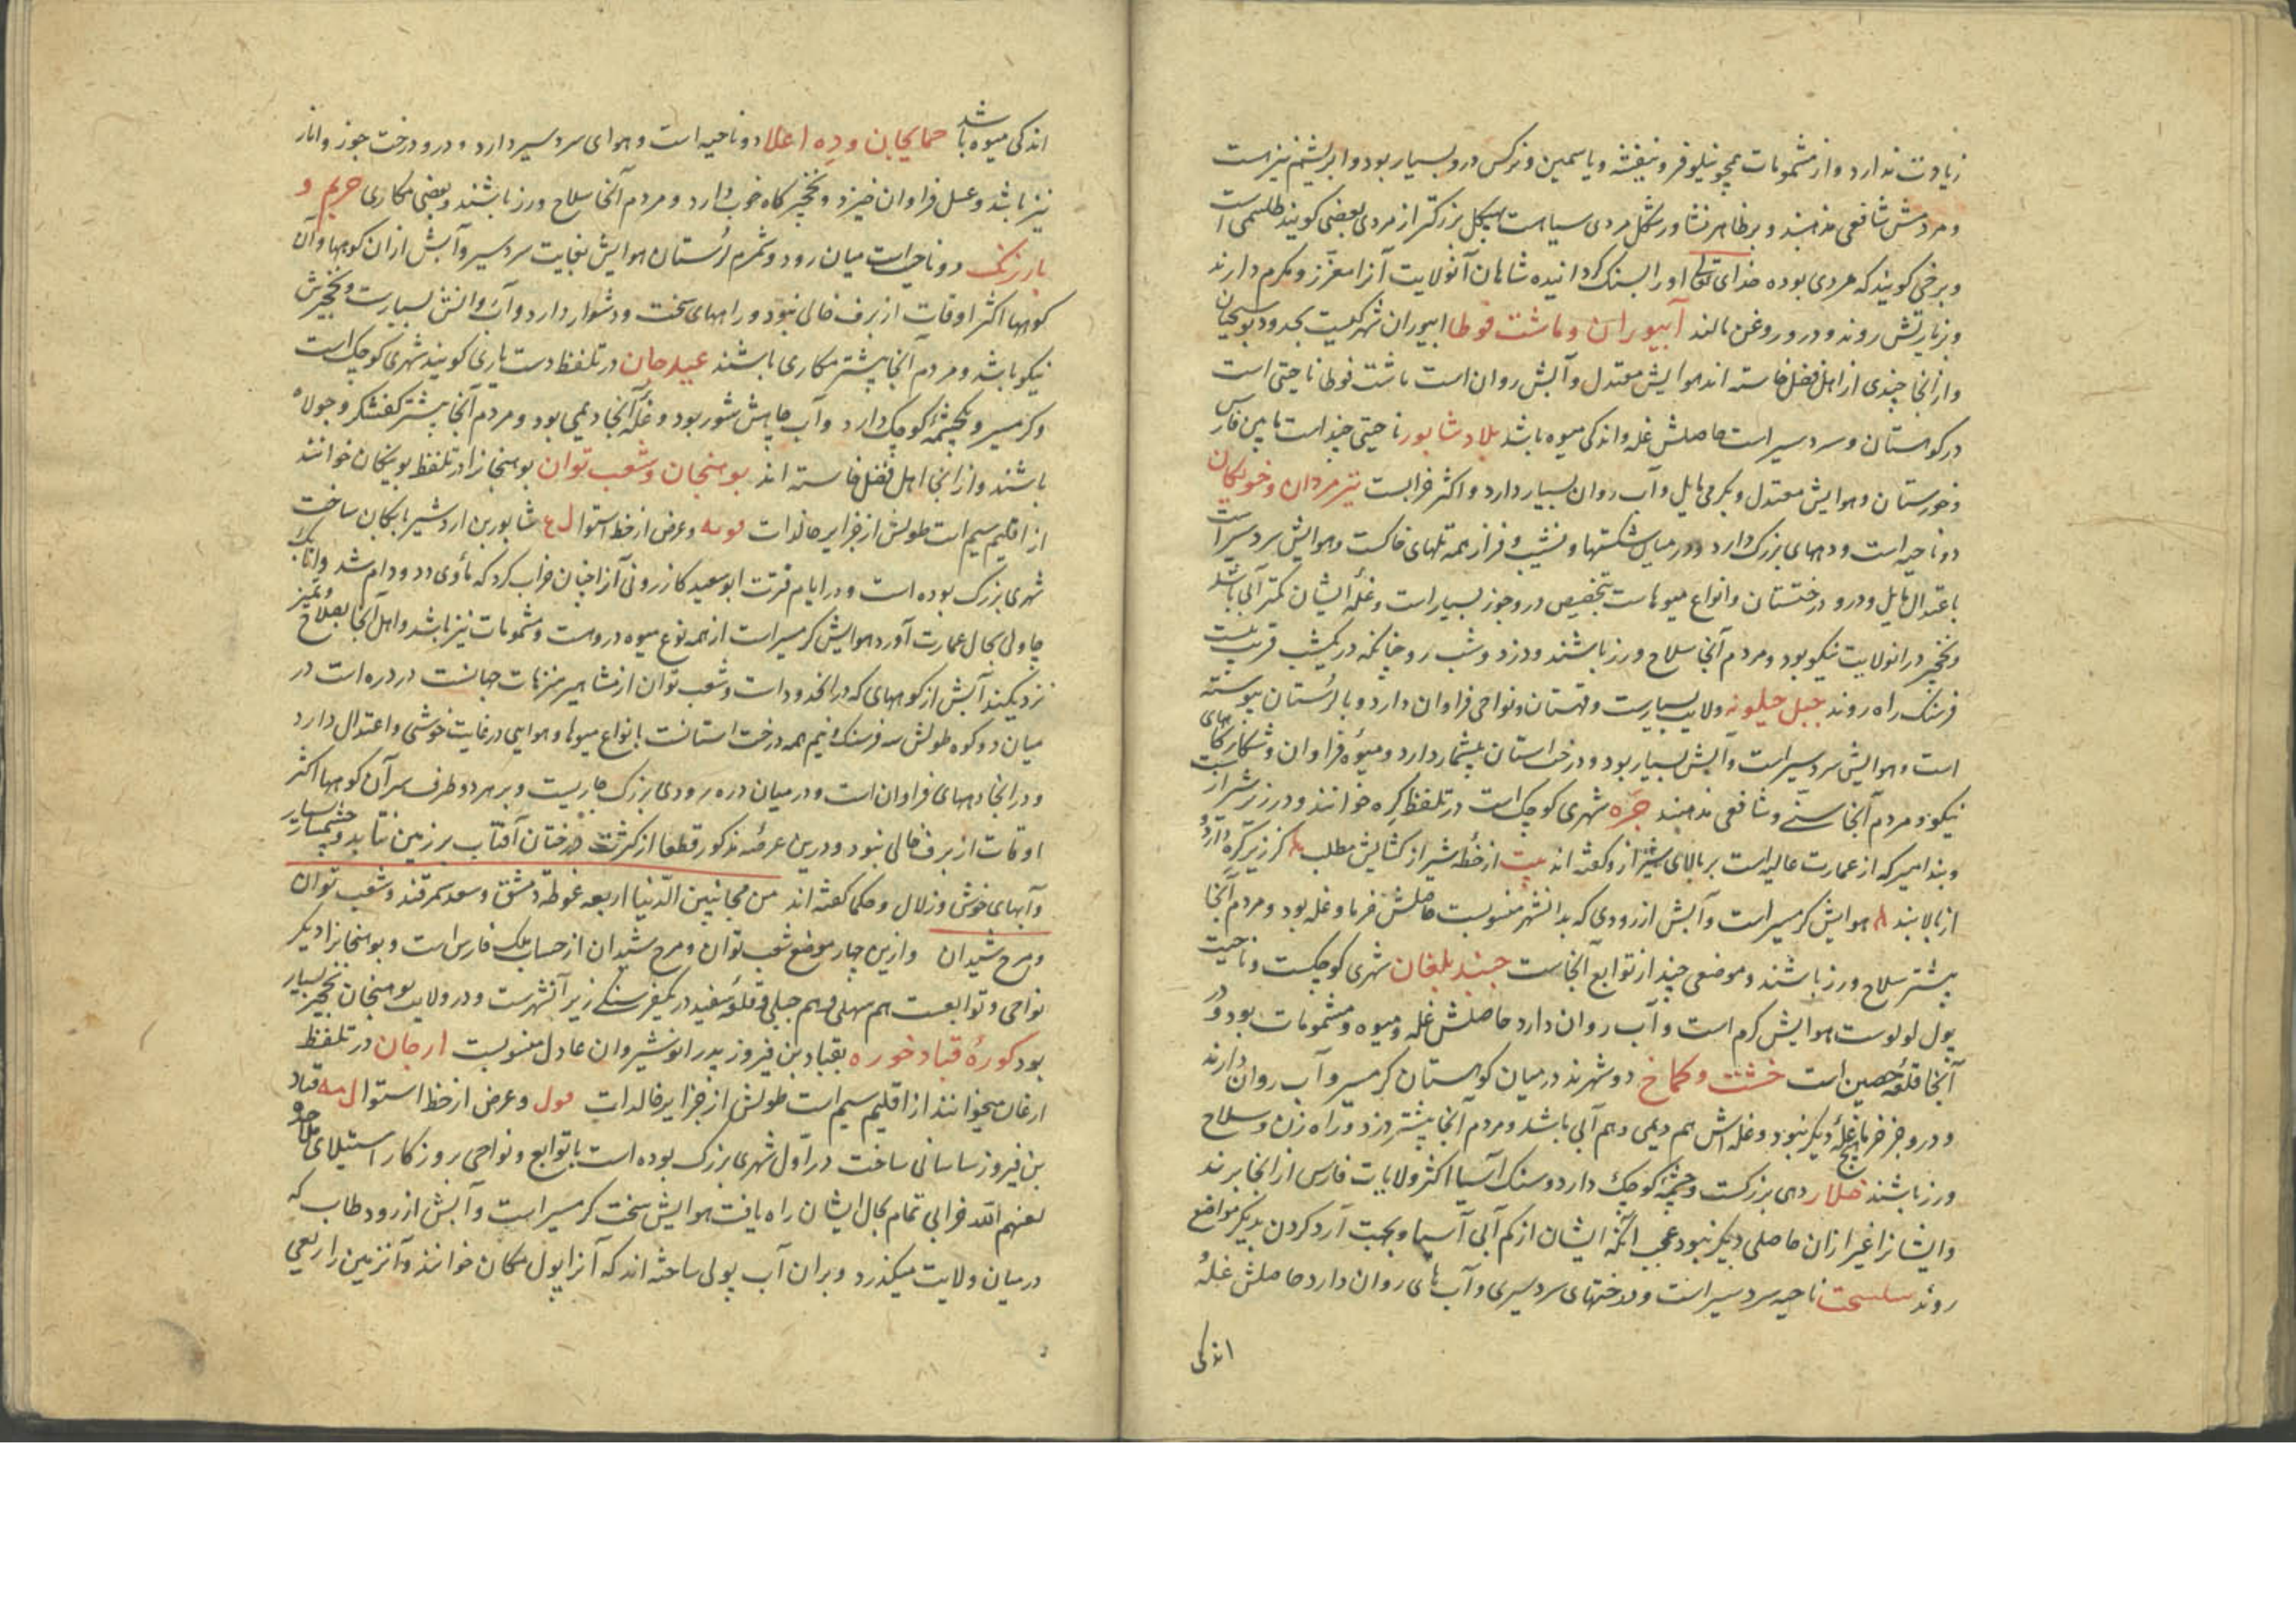 زیادت ندارد و از مشمومات همچو نیلوفر و بنفشه و یاسمین و نرکس درو بسیار بود و ابریشم نیز است
و مردمش شافعی مذهبند و بر ظاهر نشاور شکل مردی سیاه است بهیکل بزرکتر از مردی بعضی کویند طلسمی است
و برخی کویند که مردی بوده خدای تعالی او را بسنک کردانیده شاهان آنولایت آنرا معزز و مکرم دارند
و بزیارتش روند و درو روغن مالند آبیوران و ماشت قوطا ابیوران شهرکیست بحدود بوسجان
و از انجا چندی از اهل فضل خاسته اند هوایش معتدل و آبش روان است ماشت قوطا ناحیتی است
در کوهستان و سردسیر است حاصلش غله و اندکی میوه باشد بلاد شاپور ناحیتی چند است مابین فارس
و خوزستان و هوایش معتدل و بکرمی مایل و آب روان بسیار دارد و اکثر خرابست تیرمردان و خوبکان
دو ناحیه است و دههای بزرک دارد و در میان شکستها و نشیب و فراز همه تلهای خاکست و هوایش سردسیر است
باعتدال مایل و درو درختستان و انواع میوهاست بتخصیص درو جوز بسیار است و غله ایشان کمتر آبی باشد
و نخچیر در انولایت نیکو بود و مردم آنجا سلاح ورز باشند و دزد و شب رو چنانکه در یکشب قریب بیست
فرسنک راه روند جبل جیلویه ولایت بسیارست و قهستان و نواحی فراوان دارد و با لرستان پیوسته
است و هوایش سردسیر است و آبش بسیار بود و درختستان بیشمار دارد و میوه فراوان و شکارکاههای
نیکو و مردم آنجا سنی و شافعی مذهبند جره شهری کوچک است در تلفظ کره خوانند و در زیر شیراز است
و بند امیر که از عمارت عالیه است بر بالای شیراز و کفته اند بیت از خطه شیراز کشایش مطلب کز زیر کره دارد و
از بالا بند هوایش کرمسیر است و آبش از رودی که بدانشهر منسوبست حاصلش خرما و غله بود و مردم آنجا
بیشتر سلاح ورز باشند و موضعی چند از توابع آنجاست جنبد بلغان شهری کوچکست و ناحیت
پول لولوست هوایش کرم است و آب روان دارد حاصلش غله و میوه و مشمومات بود و در
آنجا قلعه حصین است خشت و کماخ دو شهرند در میان کوهستان کرمسیر و آب روان دارند
و درو جز خرما هیچ غله دیکر نبود و غله اش هم دیمی و هم آبی باشد و مردم آنجا بیشتر دزد و راه زن و سلاح
ورز باشند خلار دهی بزرکست و چشمه کوچک دارد و سنک آسیا اکثر ولایات فارس از انجا برند
و ایشانرا غیر ازان حاصلی دیکر نبود عجب انکه ایشان از کم آبی آسیا و بجهت آرد کردن بدیکر مواضع
روند ناحیه سردسیر است و درختهای سردسیری و آب های روان دارد حاصلش غله و
اندکی
اندکی میوه باشد حمایجان و ده اعلا دو ناحیه است و هوای سردسیر دارد و درو درخت جوز و انار
نیز باشد و عسل فراوان خیزد و نخچیرکاه خوب دارد و مردم آنجا سلاح ورز باشند و بعضی مکاری حریم و
بازرنک دو ناحیه است میان رود و شمرم لرستان هوایش بغایت سردسیر و آبش ازان کوهها و آن
کوهها اکثر اوقات از برف خالی نبود و راههای سخت و دشوار دارد و آب روانش بسیارست و نخچیرش
نیکو باشد و مردم آنجا بیشتر مکاری باشند عبیدجان در تلفظ دست باری کویند شهری کوچک است
و کرمسیر و یکچشمه کوچک دارد و آب چاهش شور بود و غله آنجا دیمی بود و مردم آنجا بیشتر کفشکر و جولاه
باشند و از انجا اهل فضل خاسته اند بوهنجان و شعب توان بوهنجانرا در تلفظ بوینکان خوانند
از اقلیم سیم است طولش از جزایر خالدات و عرض از خط استوا شاپور بن اردشیر بابکان ساخت
شهری بزرک بوده است و در ایام فترت ابوسعید کازرونی آنرا چنان خراب کرد که ماوی دد و دام شد و اتابک
چاولی بحال عمارت آورد هوایش کرمسیر است از همه نوع میوه دروست و مشمومات نیز باشد و اهل آنجا بصلاح و تمیز
نزدیکند آبش از کوههای که در انحدود است و شعب توان از مشاهیر منزهات جهانست در دره است در
میان دو کوه طولش سه فرسنک و نیم همه درختستانست بانواع میوها و هوایی در غایت خوشی و اعتدال دارد
و در انجا دههای فراوان است و در میان دره رودی بزرک جاریست و بر هر دو طرف سر آن کوهها اکثر
اوقات از برف خالی نبود و درین عرصه مذکور قطعا از کثرت درختان آفتاب بر زمین نتابد و چشمهای بسیار
و آبهای خوش و زلال و حکما کفته اند من مجانین الدنیا اربعه غوطه دمشق و سعد سمرقند و شعب توان
و مرج شیدان وازین چهار موضع شعب توان و مرج شیدان از حساب ملک فارس است و بوهنجانرا دیکر
نواحی و توابعست هم سهلی و هم جبلی و قلعه سفید در یکفرسنکی زیر آنشهرست و در ولایت بوهنجان نخچیر بسیار
بود کوره قباد خوره بقباد بن فیروز پدر انوشیروان عادل منسوبست ارجان در تلفظ
ارغان میخوانند از اقلیم سیم است طولش از جزایر خالدات و عرض از خط استوا قباد
بن فیروز ساسانی ساخت در اول شهری بزرک بوده است با توابع و نواحی بروزکار استیلای ملاحده
لعنهم الله خرابی تمام بحال ایشان راه یافت هوایش سخت کرمسیر است و آبش از رود طاب که
در میان ولایت میکذرد و بران آب پولی ساخته اند که آنرا پول مکان خوانند و آنزمین را ریعی